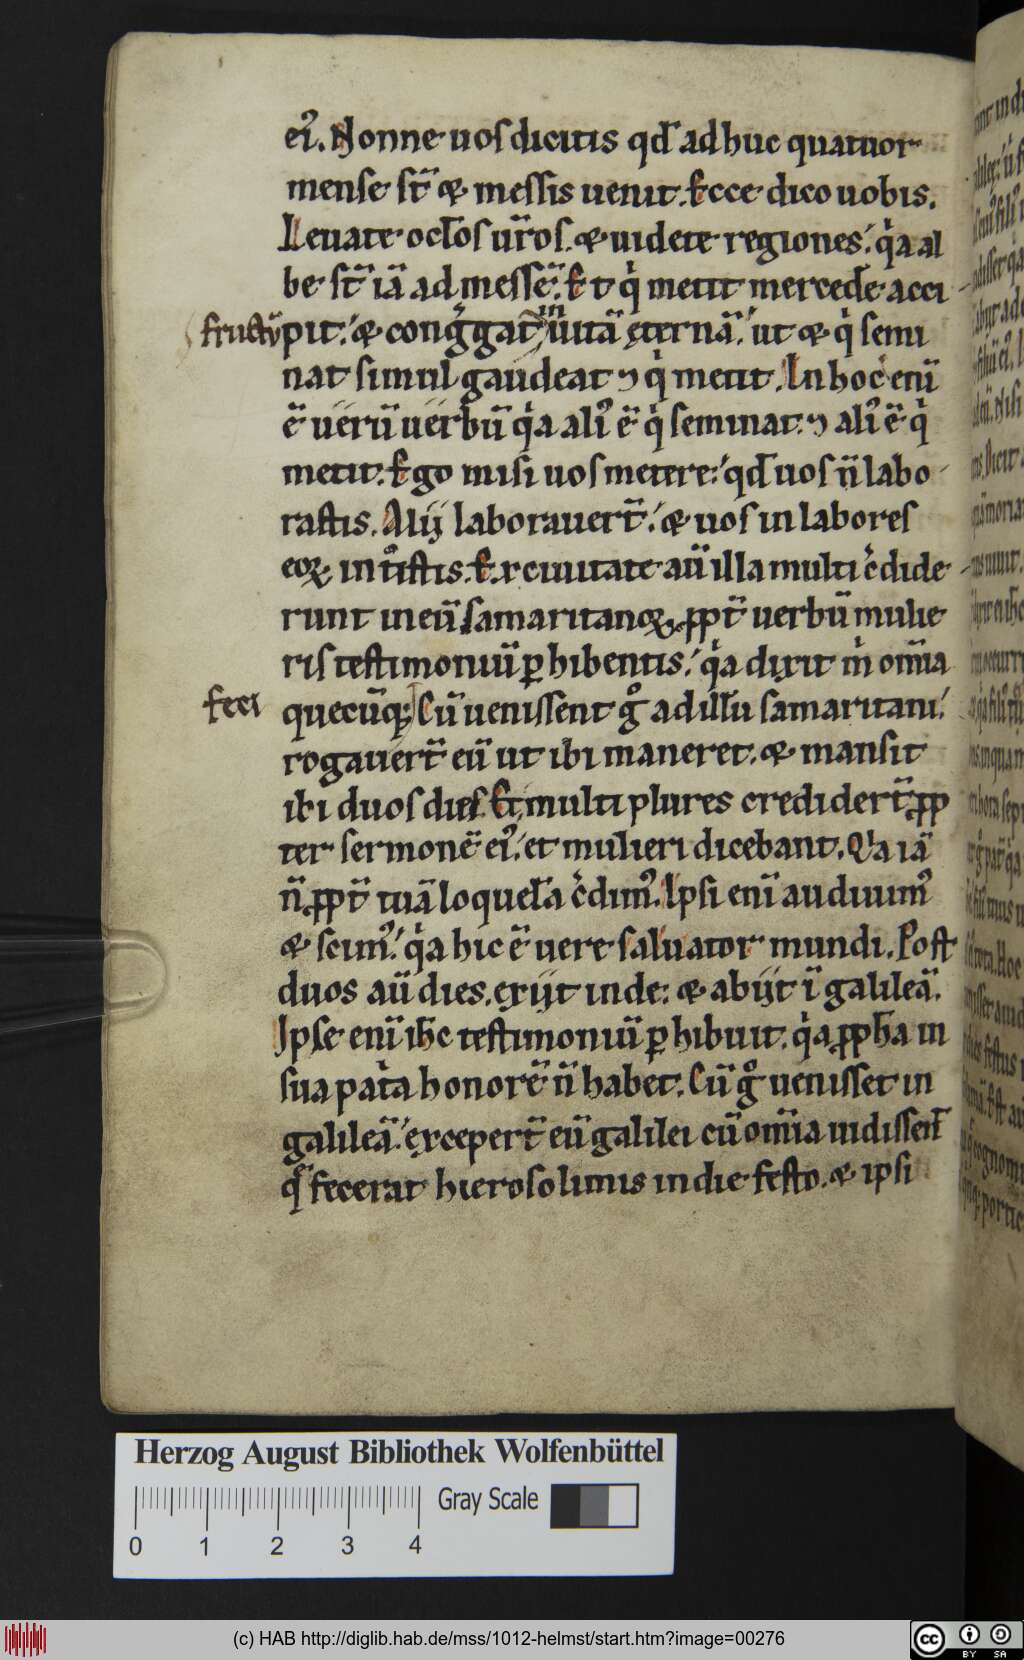 eiꝰ. Nonne uos dicitis qđ adhuc quatuor
mense st̄ & messis uenit. Ecce dico uobis.
Leuate oct̄os ur̄os. & uidete regiones. qͥa al
be st̄ iā ad messē. Et qͥ metit mercedē acci
fructū pit. & congͣgat in uitā ęternā. ut & qͥ semi
nat simul gaudeat ⁊ qͥ metit. In hoc enī
ē uerū uerbū qͥa aliꝰ ē qͥ seminat. ⁊ aliꝰ ē qͥ
metit. Ego misi uos metere. qđ uos n̄ labo
rastis. Alij laborauer̄t. & uos in labores
eoꝝ intͦistis. Ex ciuitate aū illa multi cͥdide
runt in eū samaritanoꝝ. ꝓpt̄ uerbū mulie
ris testimoniū ꝑhibentis. qͥa dixit mͥ om̄ia
feci quecūqꝫ Cū uenissent gͦ ad illū samaritani.
rogauer̄t eū ut ibi maneret. & mansit
ibi duos dies. Et multi plures credider̄t ꝓp
ter sermonē eiꝰ. et mulieri dicebant. Qͥa iā
n̄ ꝓpt̄ tuā loquelā cͥdimꝰ. Ipsi enī audiuimꝰ
& scimꝰ. qͥa hic ē uere saluator mundi. Post
duos aū dies. exijt inde. & abijt ī galileā.
Ipse enī ih̄c testimoniū ꝑhibuit. qͥa ꝓph̄a in
sua patͥa honorē n̄ habet. Cū gͦ uenisset in
galileā. exceper̄t eū galilei cū om̄ia uidissent
qͣ fecerat hierosolimis in die festo. & ipsi
Herzog August Bibliothek Wolfenbüttel
Gray Scale
0 1 2 3 4
(c) HAB http://diglib.hab.de/mss/1012-helmst/start.htm?image=00276
cc BY SA